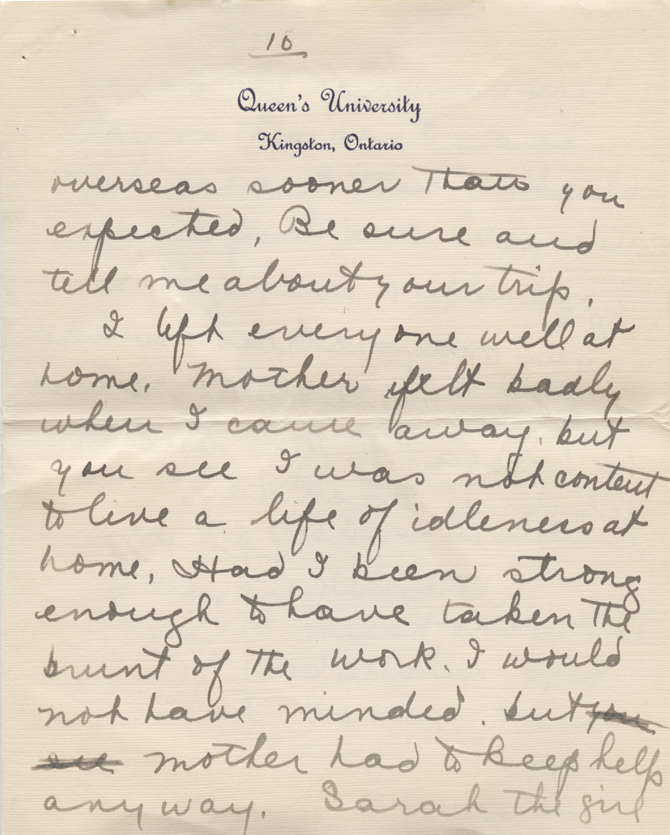 10
Queen's University
Kingston, Ontario
overseas sooner than you
expected, Be sure and
tell me about your trip.
I left every one well at
home. Mother felt badly
when I came away, but
you see I was not content
to live a life of idleness at
home, Had I been strong
enough to have taken the
brunt of the work. I would
not have minded. but you
see mother had to keep help
any way. Sarah the girl